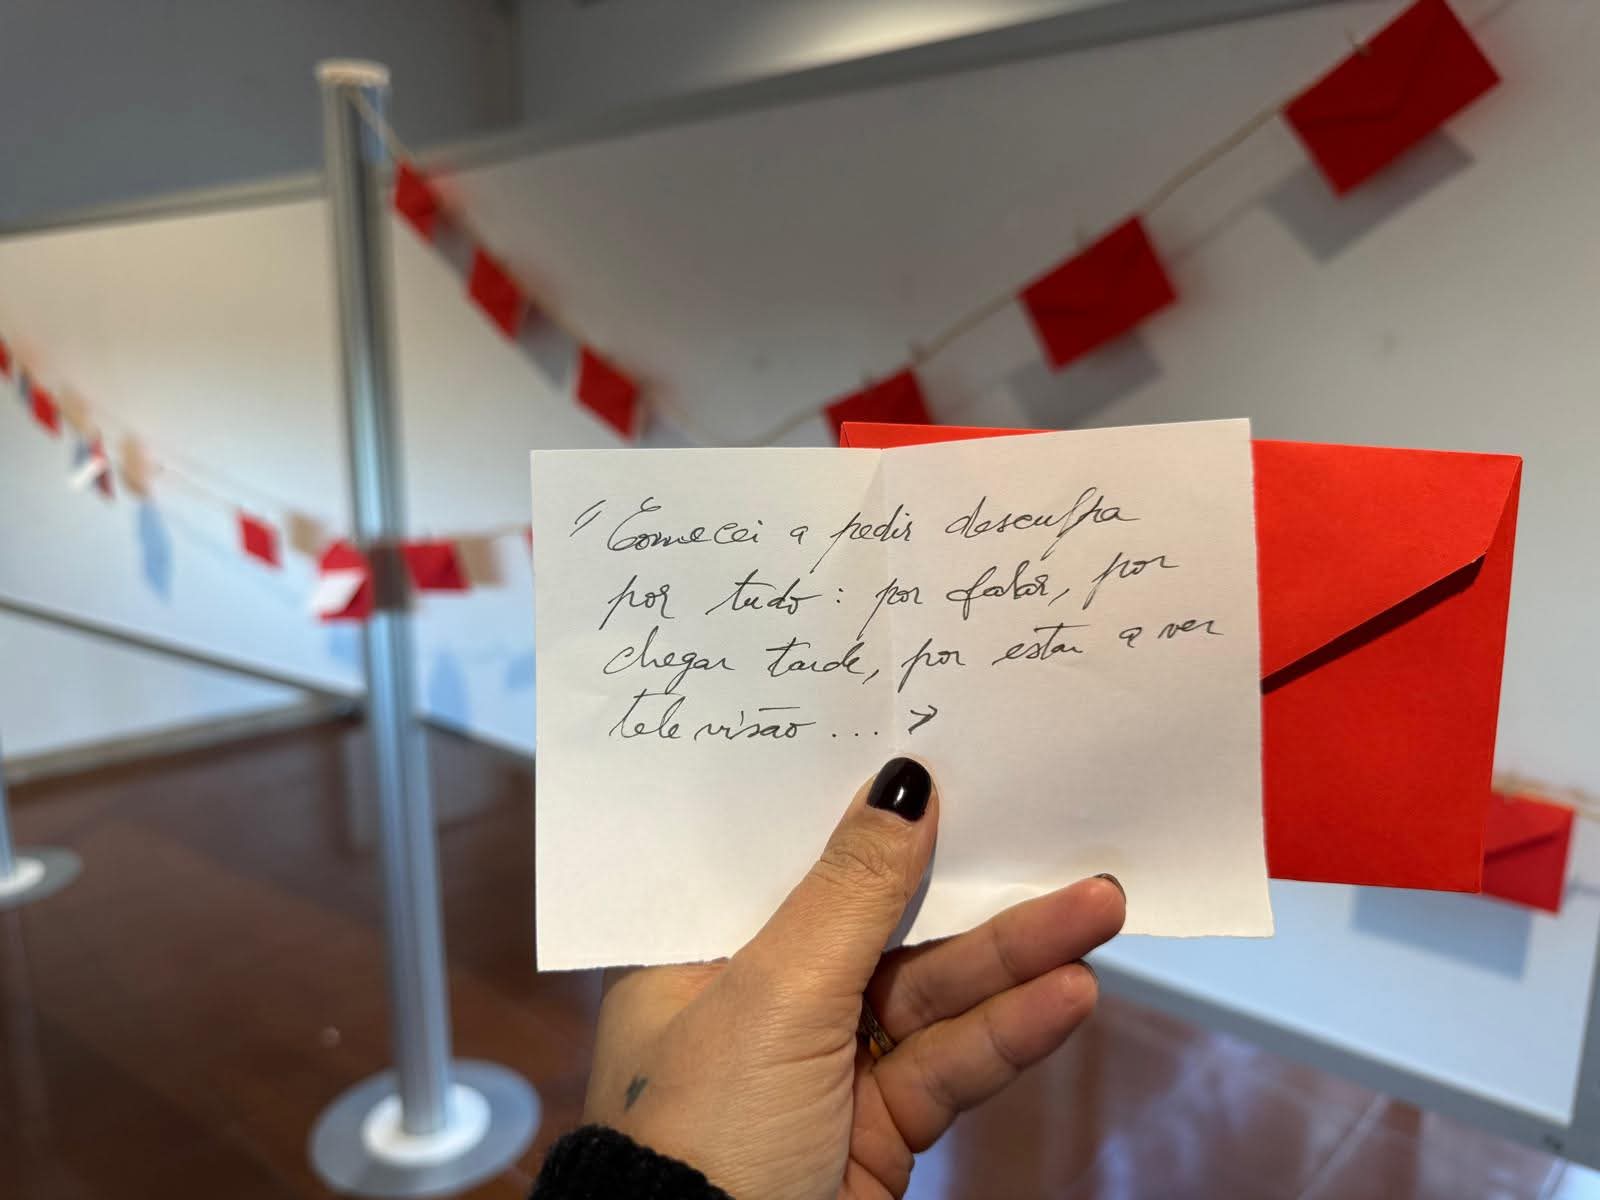 "Comecei a pedir desculpa
por tudo: por falar, por
chegar tarde, por estar a ver
televisão... >